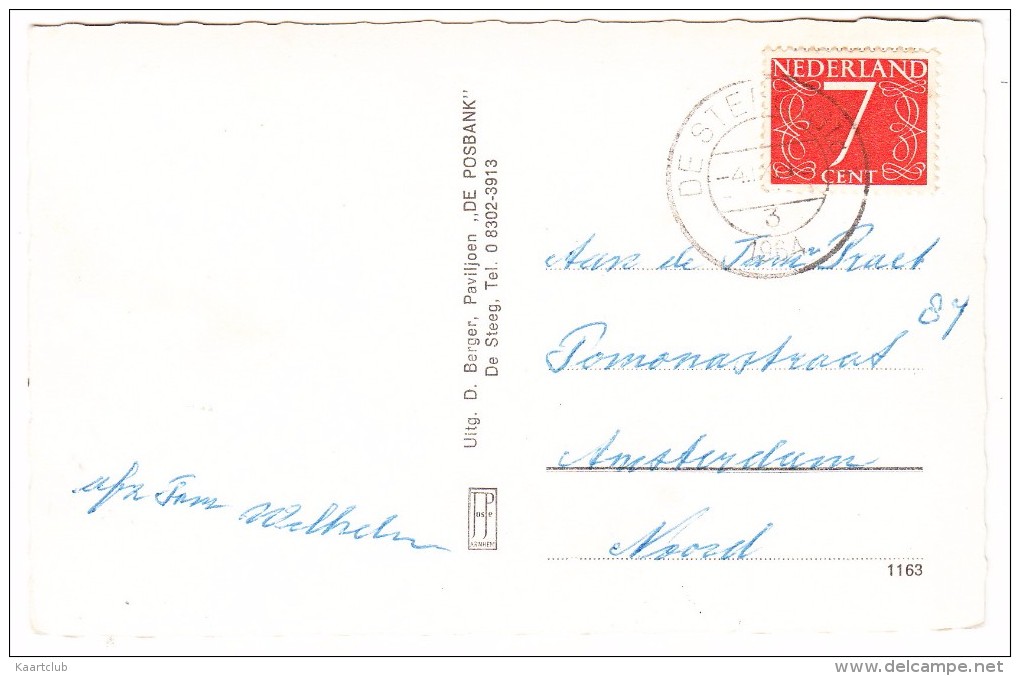 NEDERLAND
7
CENT
DE STEEG
3
1964
Uitg. D. Berger, Paviljoen „DE POSBANK"
De Steeg, Tel. 0 8302-3913
Aan de Fam Praet
Pomonastraat 87
Amsterdam
Noord
afz Fam Welhelm
JosPé
ARNHEM
1163
Kaartclub
http://www.delcampe.net